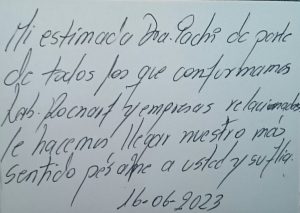 Mi estimada Dra. Pochi de parte
de todos los que conformamos
Lab. Rocnarf y empresas relacionadas
le hacemos llegar nuestro más
sentido pésame a usted y su flia.
16-06-2023